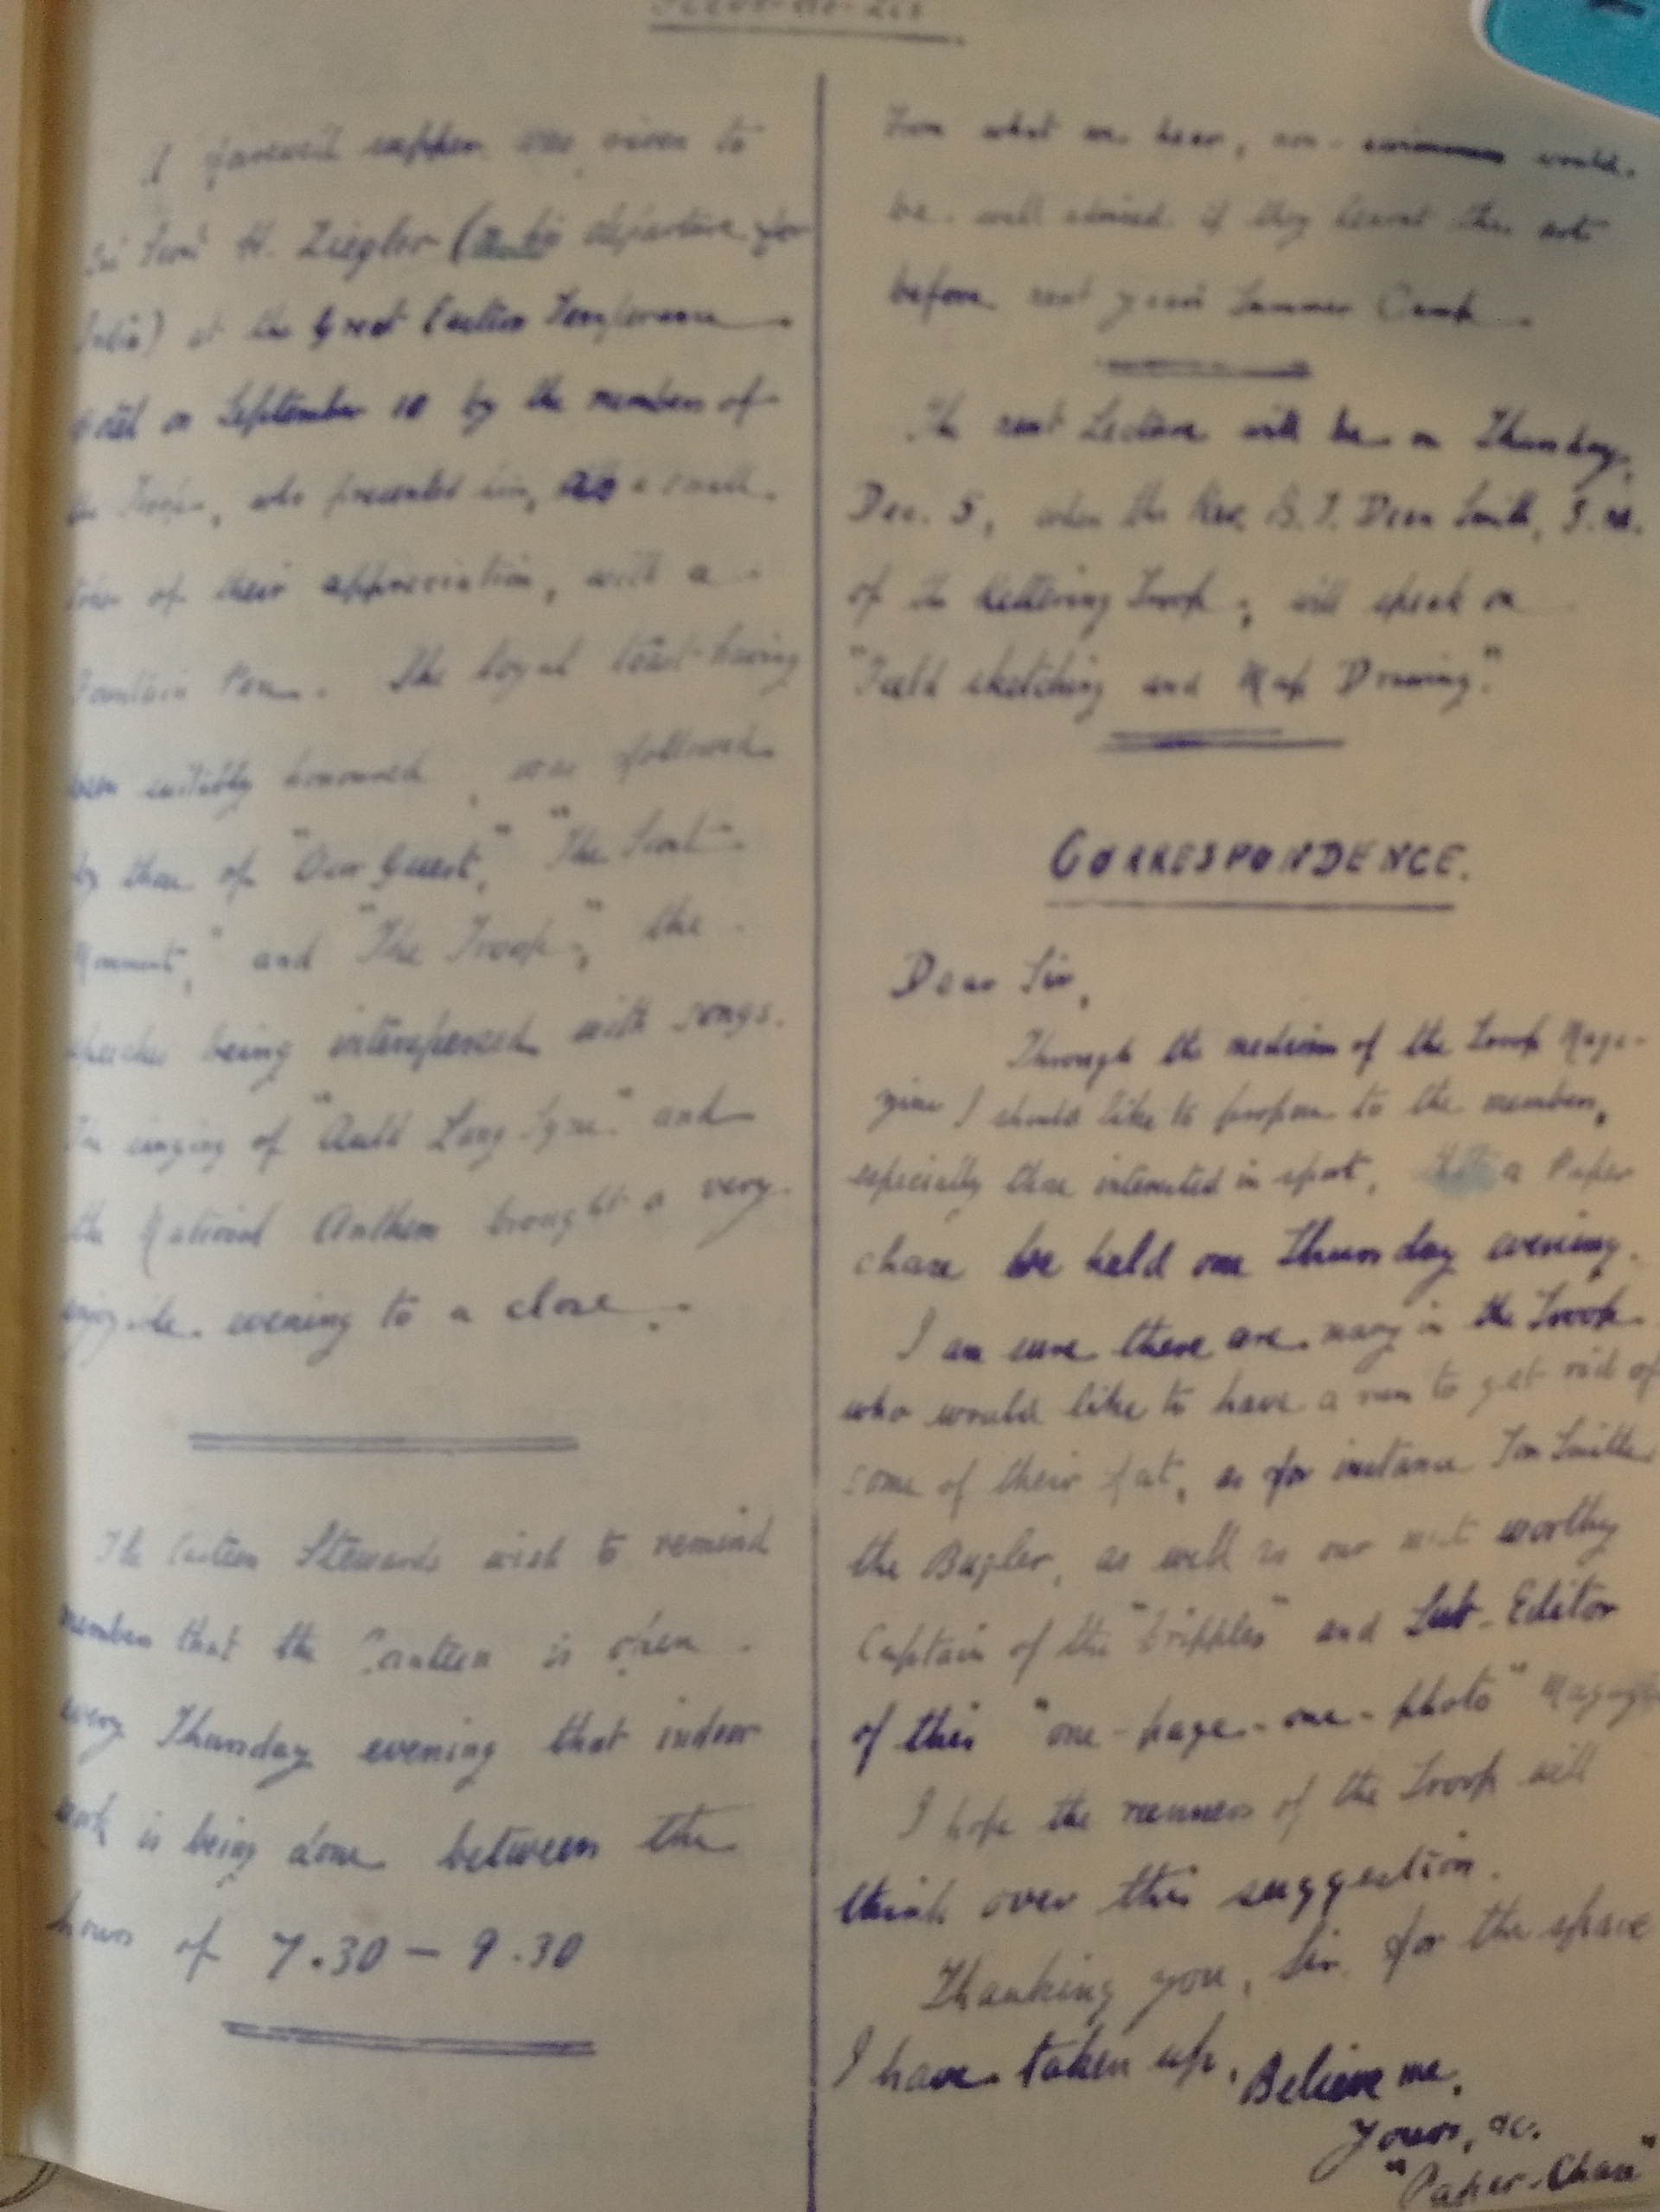 Fleur-de-Lis
A farewell supper was given to
H. Ziegler ( departure for
India) at the Great Eastern Temperance
Hotel on September 10 by the members of
the Troop, who presented him, as a small
token of their appreciation, with a
Fountain Pen. The loyal toast having
been suitably honoured, was followed
by those of "Our Guest," "The Scout
Movement," and "The Troop", the
speeches being interspersed with songs.
The singing of "Auld Lang Syne" and
the National Anthem brought a very
enjoyable evening to a close.
The Canteen Stewards wish to remind
members that the Canteen is open
every Thursday evening that indoor
work is being done between the
hours of 7.30 — 9.30
From what we hear, non- would
be well advised if they learnt the art
before next year's Summer Camp.
The next Lecture will be on Thursday,
Dec. 5, when the Rev. Dean Smith, S.M.
of the Kettering Troop, will speak on
"Field sketching and Map Drawing."
CORRESPONDENCE.
Dear Sir,
Through the medium of the Troop Maga-
zine I should like to propose to the members,
especially those interested in sport, that a Paper
chase be held one Thursday evening.
I am sure there are many in the Troop
who would like to have a run to get rid of
some of their fat, as for instance Smith
the Bugler, as well as our most worthy
Captain of the "Cripples" and Sub-Editor
of this "one-page-one-photo" Magazine
I hope the runners of the Troop will
think over this suggestion.
Thanking you, Sir, for the space
I have taken up, Believe me,
Yours, &c.
"Paper-Chase"